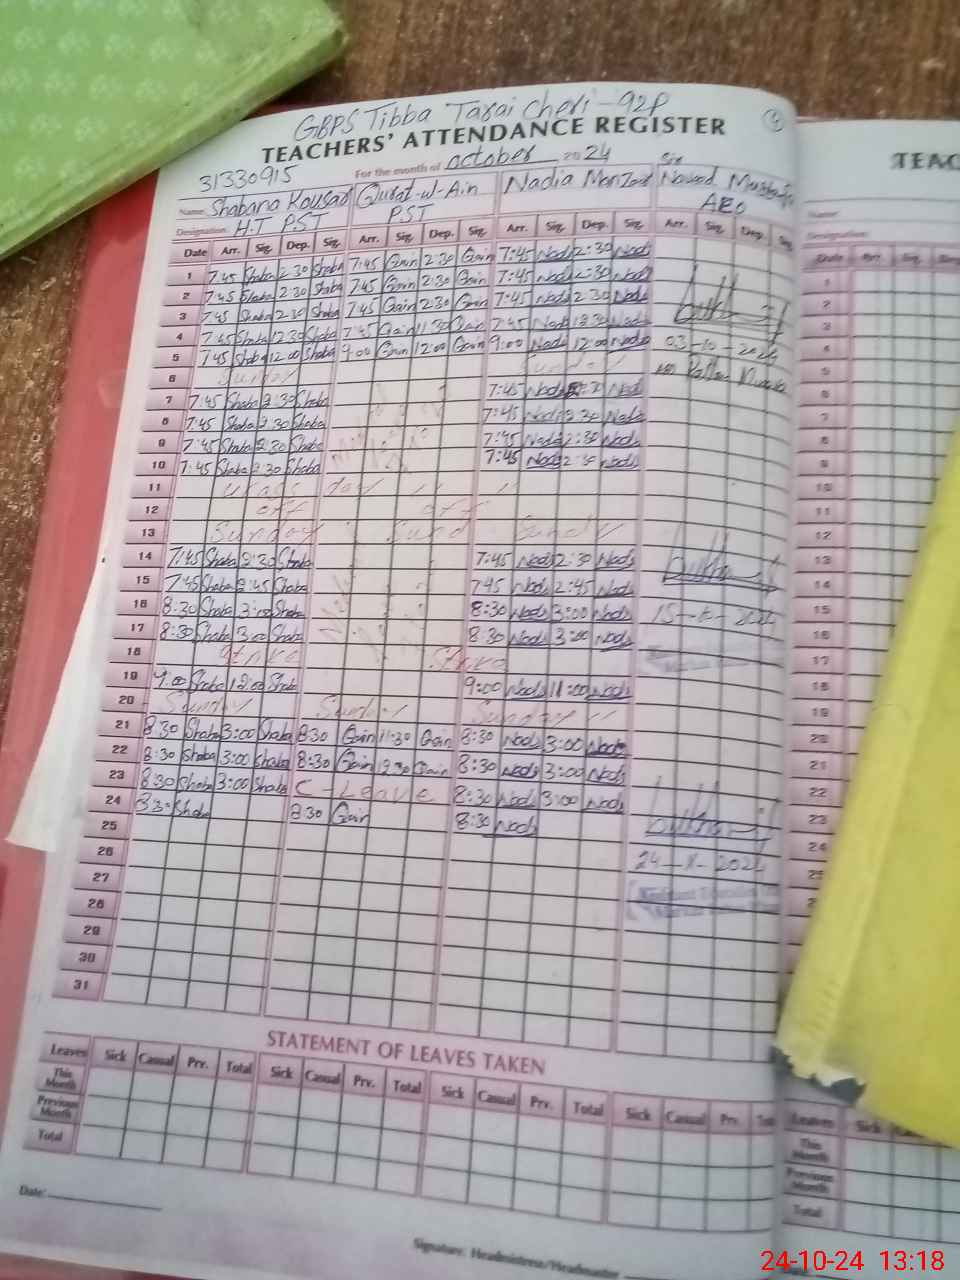 GBPS Tibba Tarai Cheri - 92P
TEACHERS' ATTENDANCE REGISTER
31330915 For the month of october 2024
Name: Shabana Kousar Qurat-ul-Ain Nadia Manzoor Sir Nawad
Designation: H.T PST PST AEO
Date Arr. Sig. Dep. Sig. Arr. Sig. Dep. Sig. Arr. Sig. Dep. Sig. Arr. Sig. Dep. Sig.
1 7:45 Shaba 2:30 Shaba 7:45 Gain 2:30 Gain 7:45 Nads 2:30 Nads
2 7:45 Shaba 2:30 Shaba 7:45 Gain 2:30 Gain 7:45 Nads 2:30 Nads
3 7:45 Shaba 2:30 Shaba 7:45 Gain 2:30 Gain 7:45 Nads 2:30 Nads
4 7:45 Shaba 12:30 Shaba 7:45 Gain 11:30 Gain 7:45 Nads Nads 03-10-2024
5 7:45 Shaba 12:00 Shaba 9:00 Gain 12:00 Gain 9:00 Nads 12:00 Nads
6 Sunday Sunday
7 7:45 Shaba 2:30 Shaba 7:45 Nads 2:30 Nads
8 7:45 Shaba 2:30 Shaba 7:45 Nads 2:30 Nads
9 7:45 Shaba 2:30 Shaba 7:45 Nads 2:30 Nads
10 7:45 Shaba 2:30 Shaba 7:45 Nads 2:30 Nads
11 day 11 11
12 off off
13 Sunday Sund Sundy
14 7:45 Shaba 2:30 Shaba 7:45 Nads 2:30 Nads
15 7:45 Shaba 2:45 Shaba 7:45 Nads 2:45 Nads
16 8:30 Shaba 3:00 Shaba 8:30 Nads 3:00 Nads 15-10-2024
17 8:30 Shaba 3:00 Shaba 8:30 Nads 3:00 Nads
18 Strike Strike
19 9:00 Shaba 12:00 Shaba 9:00 Nads 11:00 Nads
20 Sunday Sunday Sunday 11
21 8:30 Shaba 3:00 Shaba 8:30 Gain 11:30 Gain 8:30 Nads 3:00 Nads
22 8:30 Shaba 3:00 Shaba 8:30 Gain 12:30 Gain 8:30 Nads 3:00 Nads
23 8:30 Shaba 3:00 Shaba C-Leave 8:30 Nads 3:00 Nads
24 8:30 Shaba 8:30 Gain 8:30 Nads
25
26 24-X-2024
27
28
29
30
31
STATEMENT OF LEAVES TAKEN
Leaves Sick Casual Prv. Total Sick Casual Prv. Total Sick Casual Prv. Total Sick Casual Prv.
This Month
Previous Month
Total
Date:
Signature: Headmistress/Headmaster
TEAC
Name:
Designation:
Date Arr. Sig.
1
2
3
4
5
6
7
8
9
10
11
12
13
14
15
16
17
18
19
20
21
22
23
24
25
Leaves Sick
This Month
Previous Month
Total
24-10-24 13:18